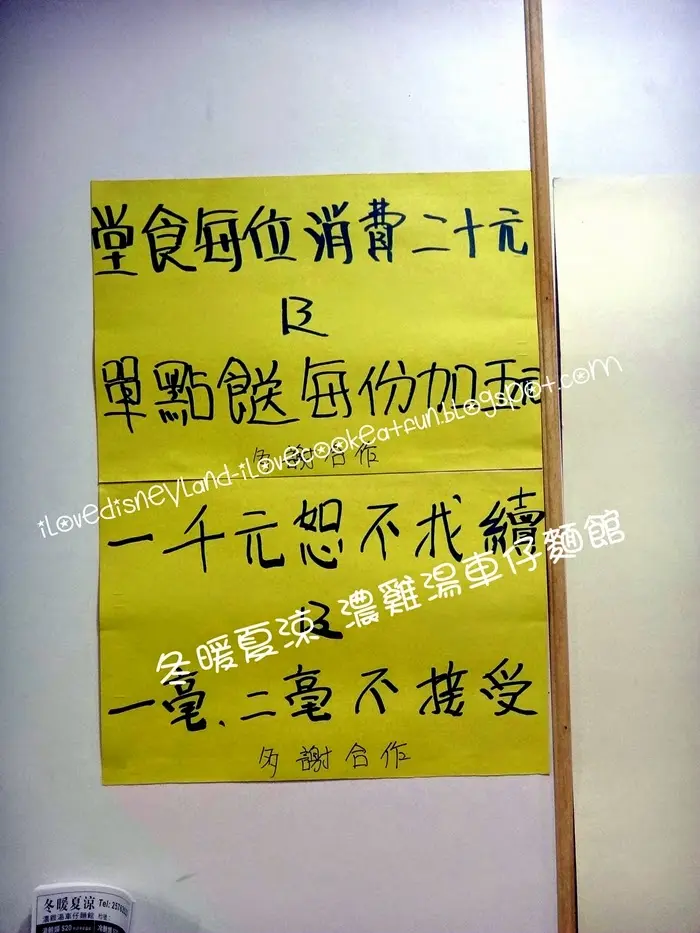 堂食每位消費二十元
及
單點餸每份加
多謝合作
iLoveDisneyLand-iLovecookeatfun.blogspot.com
一千元恕不找續
及
冬暖夏涼 濃雞湯車仔麵館
一毫、二毫不接受
多謝合作
冬暖夏涼 Tel:
濃雞湯車仔麵館